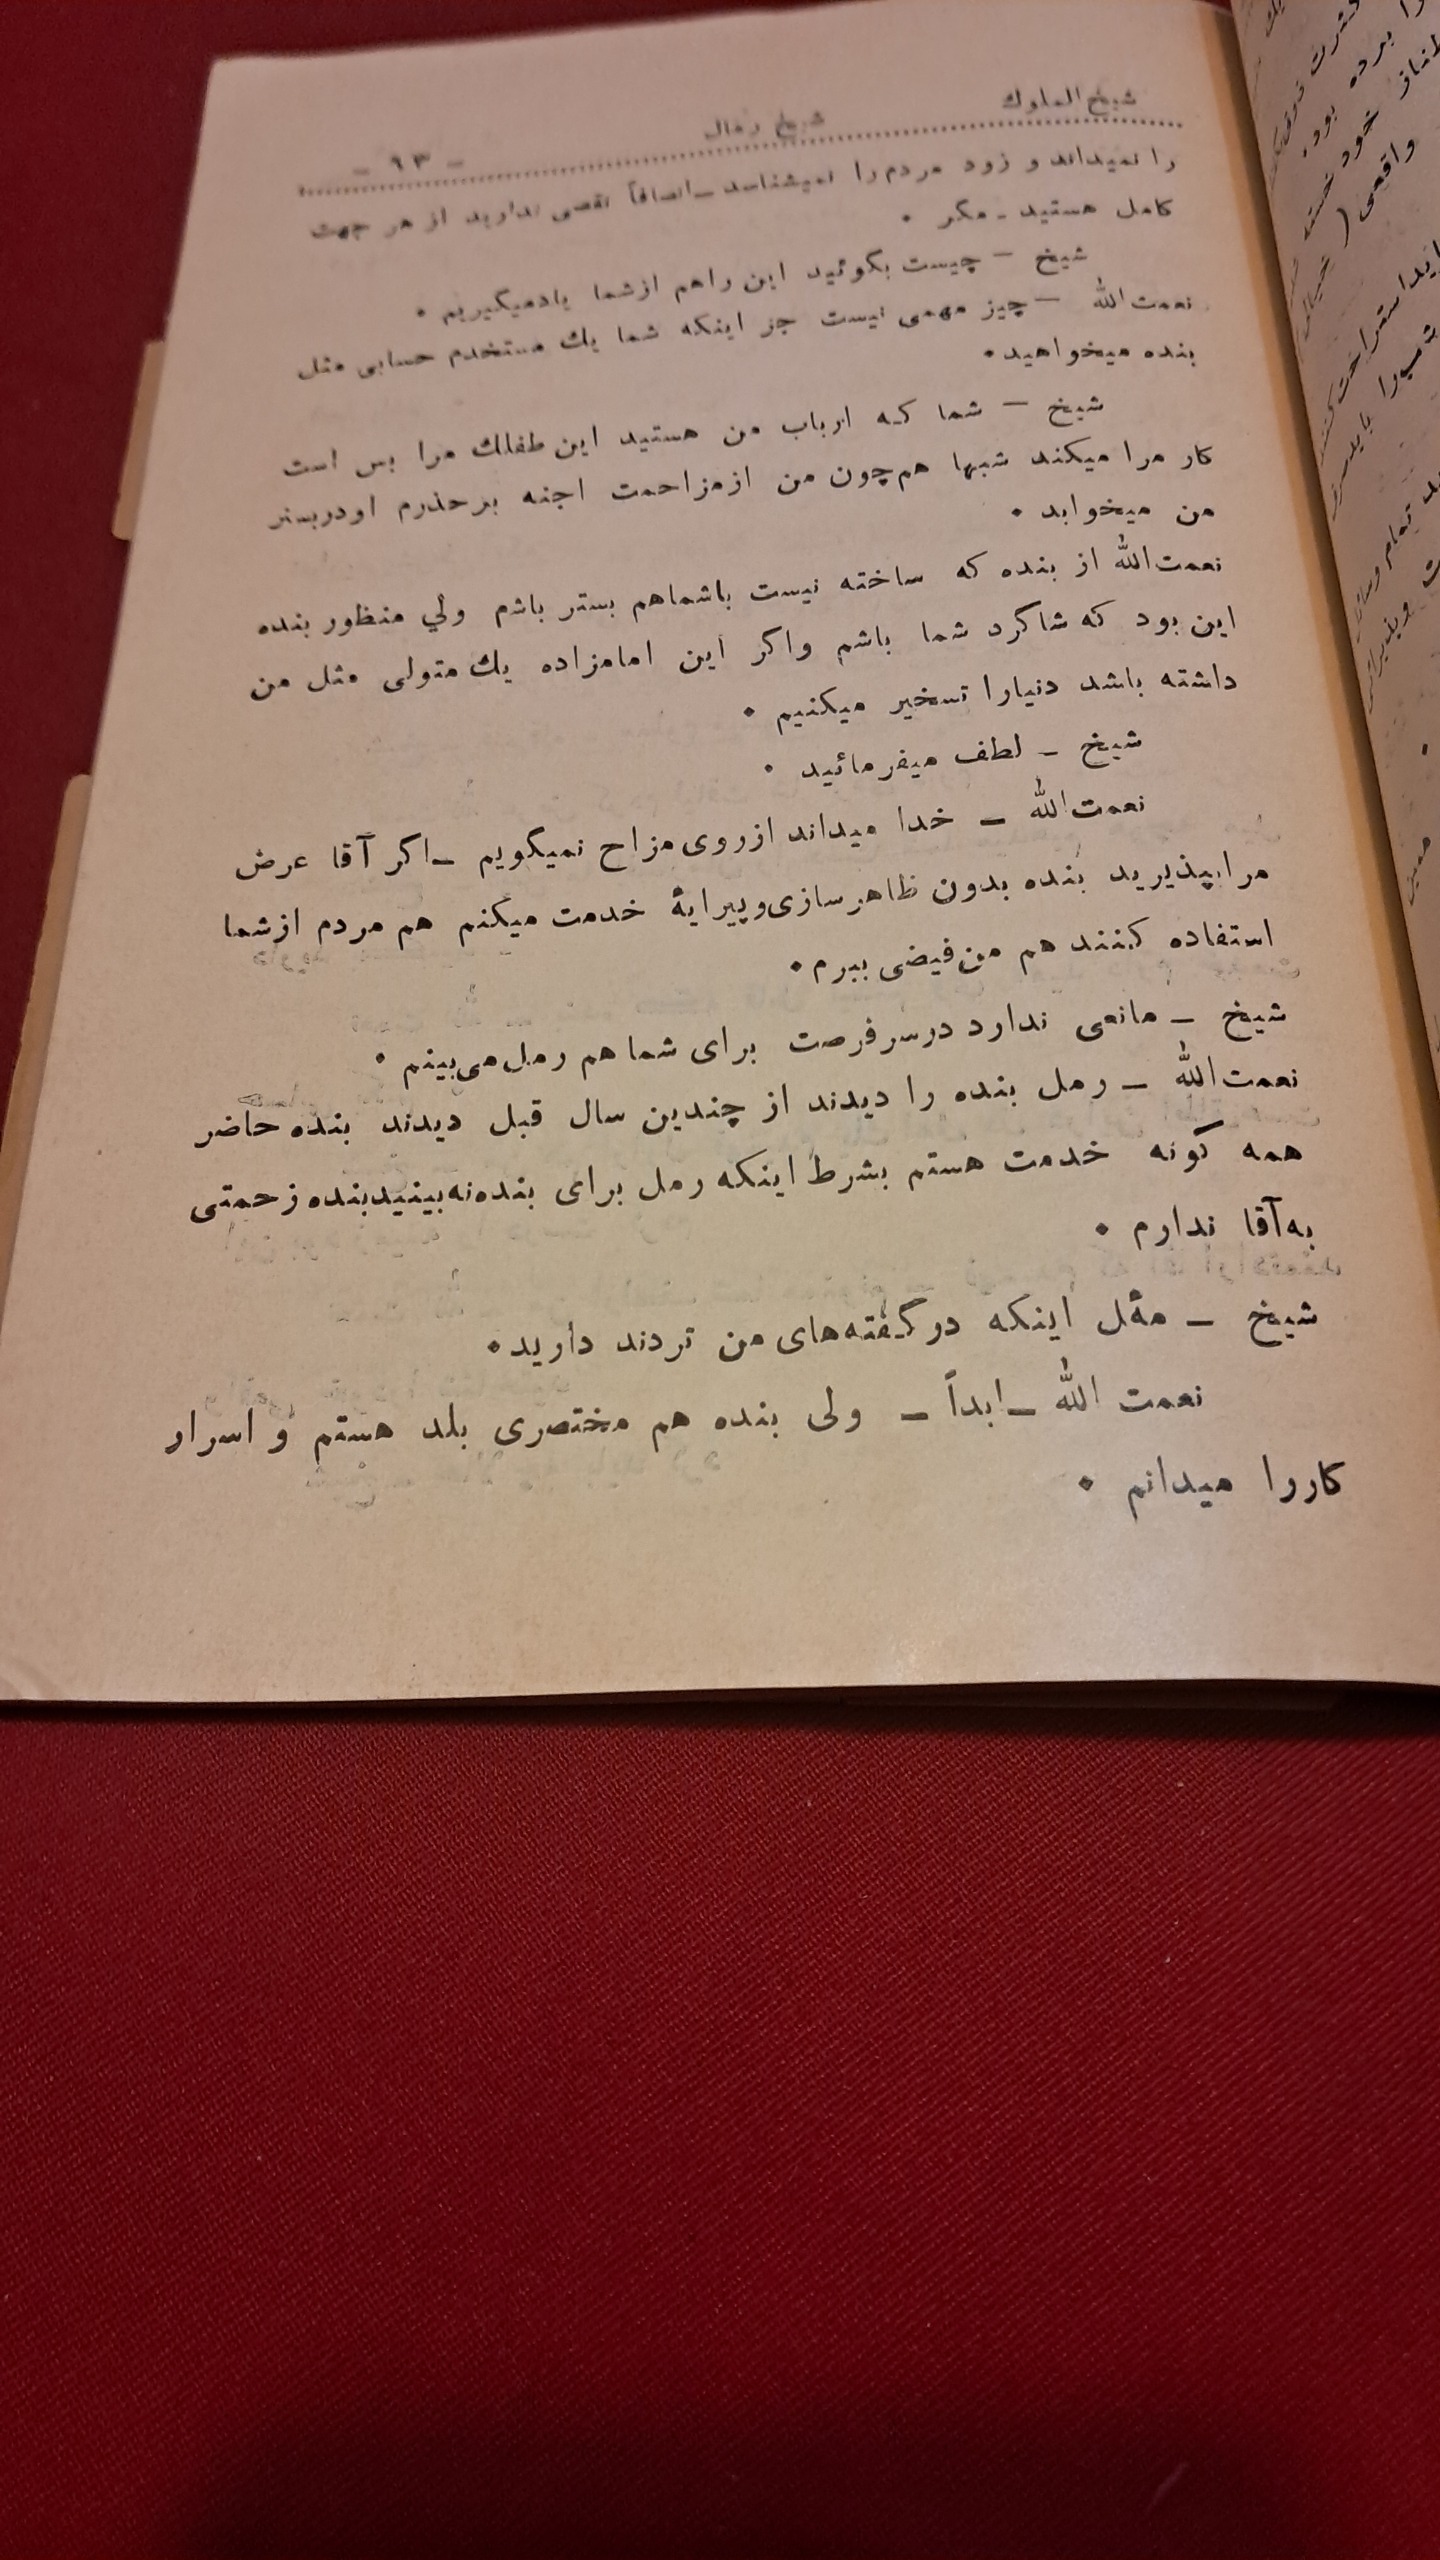 شیخ الملوك شیخ رمال - ٩٣ -
را نمیداند و زود مردم را نمیشناسد - انصافاً نقصی ندارید از هر جهت
کامل هستید - مگر .
شیخ - چیست بگوئید این راهم ازشما یادمیگیریم .
نعمت الله - چیز مهمی نیست جز اینکه شما یك مستخدم حسابی مثل
بنده میخواهید .
شیخ - شما که ارباب من هستید این طفلك مرا بس است
کار مرا میکند شبها هم چون من ازمزاحمت اجنه برحذرم اودربستر
من میخوابد .
نعمت الله از بنده که ساخته نیست باشماهم بستر باشم ولي منظور بنده
این بود که شاگرد شما باشم واگر این امامزاده یك متولی مثل من
داشته باشد دنیارا تسخیر میکنیم .
شیخ - لطف میفرمائید .
نعمت الله - خدا میداند ازروی مزاح نمیگویم - اگر آقا عرض
مرابپذیرید بنده بدون ظاهرسازی وپیرایهٔ خدمت میکنم هم مردم ازشما
استفاده کنند هم من فیضی ببرم .
شیخ - مانعی ندارد درسرفرصت برای شما هم رمل می بینم .
نعمت الله - رمل بنده را دیدند از چندین سال قبل دیدند بنده حاضر
همه گونه خدمت هستم بشرط اینکه رمل برای بنده نه بینید بنده زحمتی
به آقا ندارم .
شیخ - مثل اینکه در گفته های من تردند دارید .
نعمت الله - ابداً - ولی بنده هم مختصری بلد هستم و اسرار
کاررا میدانم .